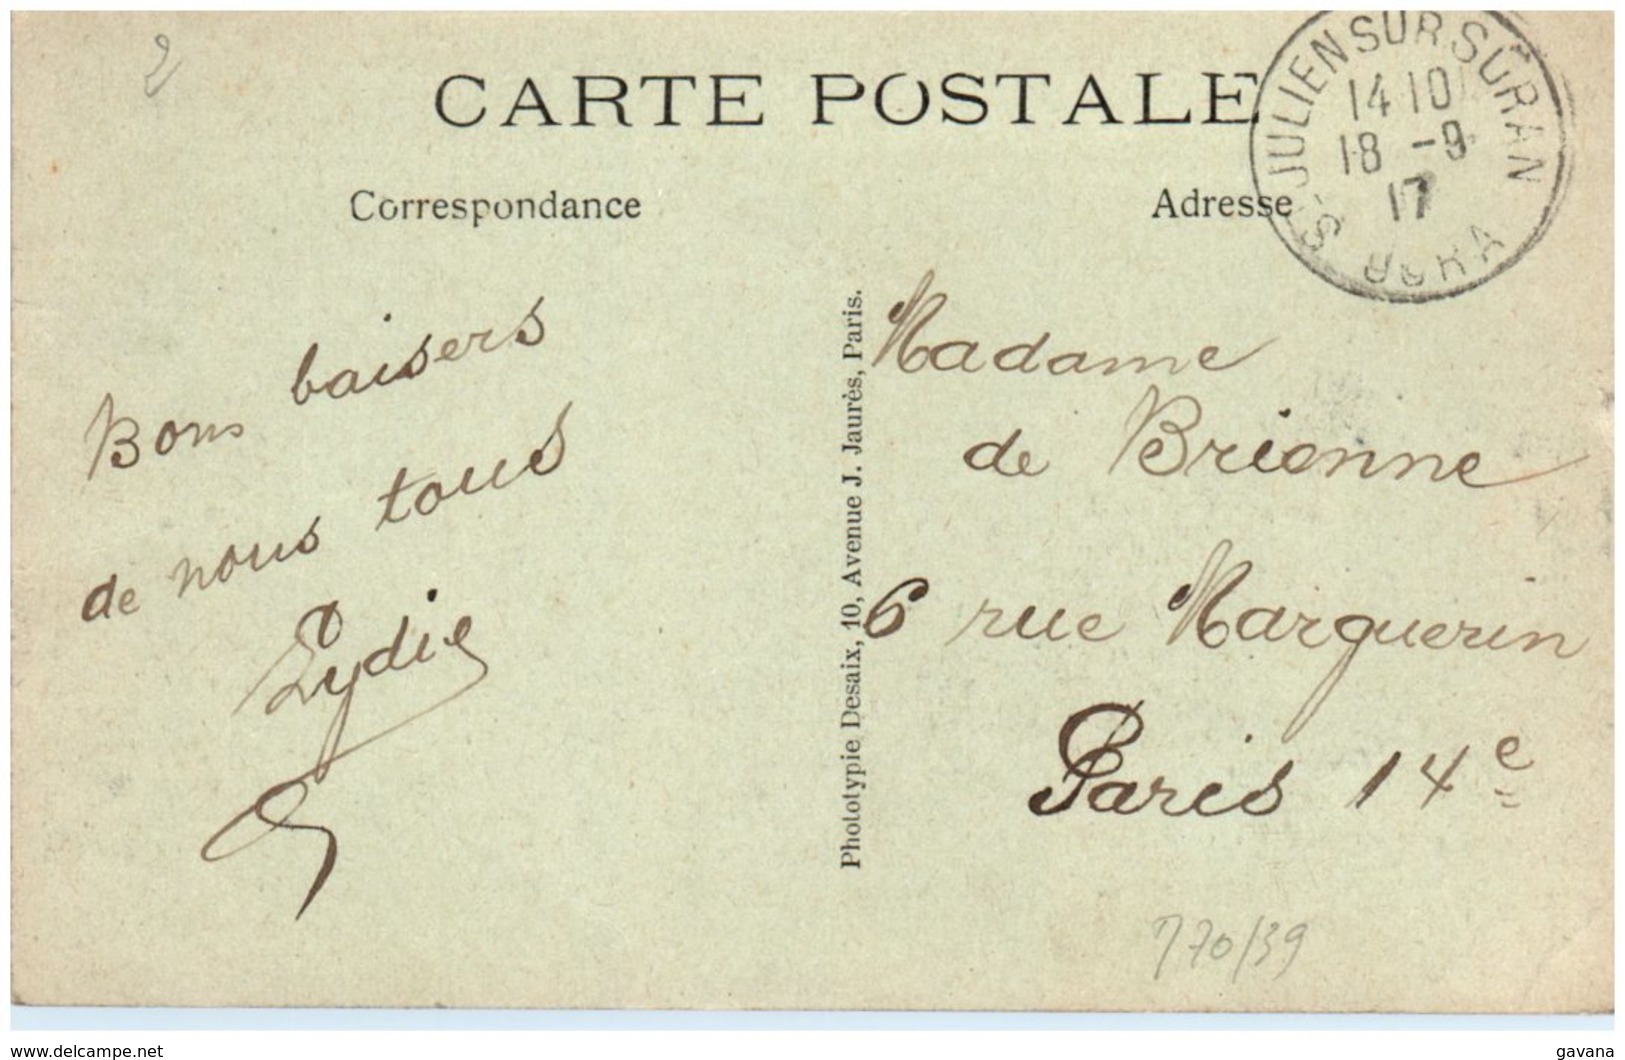 2
CARTE POSTALE
Correspondance
Adresse
St-JULIEN SUR SURAN
14 10
18 -9
17
JURA
Bons baisers
de nous tous
Lydie
Phototypie Desaix, 10, Avenue J. Jaurès, Paris.
Madame
de Brienne
6 rue Marguerin
Paris 14e
770/39
www.delcampe.net
gavana